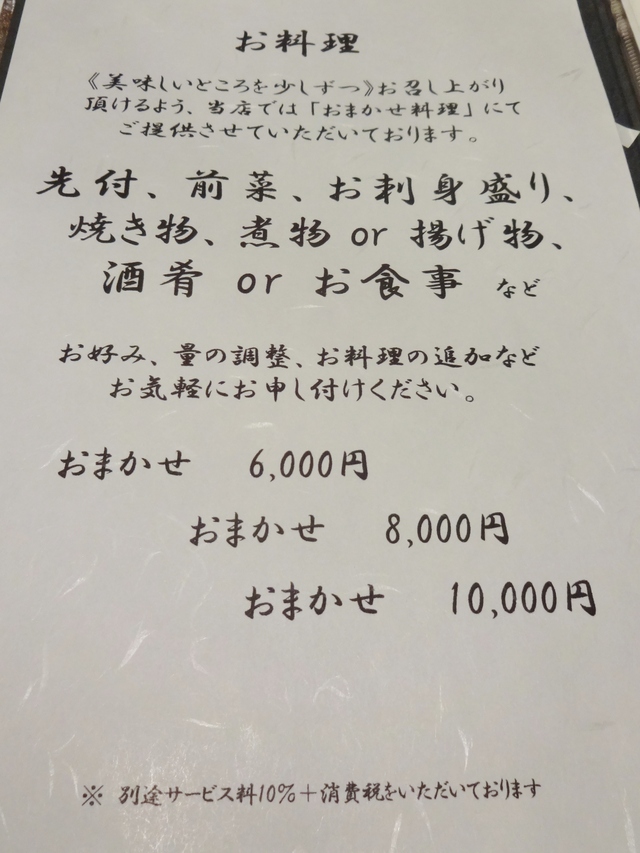 お料理
《美味しいところを少しずつ》お召し上がり
頂けるよう、当店では「おまかせ料理」にて
ご提供させていただいております。
先付、前菜、お刺身盛り、
焼き物、煮物 or 揚げ物、
酒肴 or お食事 など
お好み、量の調整、お料理の追加など
お気軽にお申し付けください。
おまかせ 6,000円
おまかせ 8,000円
おまかせ 10,000円
※ 別途サービス料10%＋消費税をいただいております